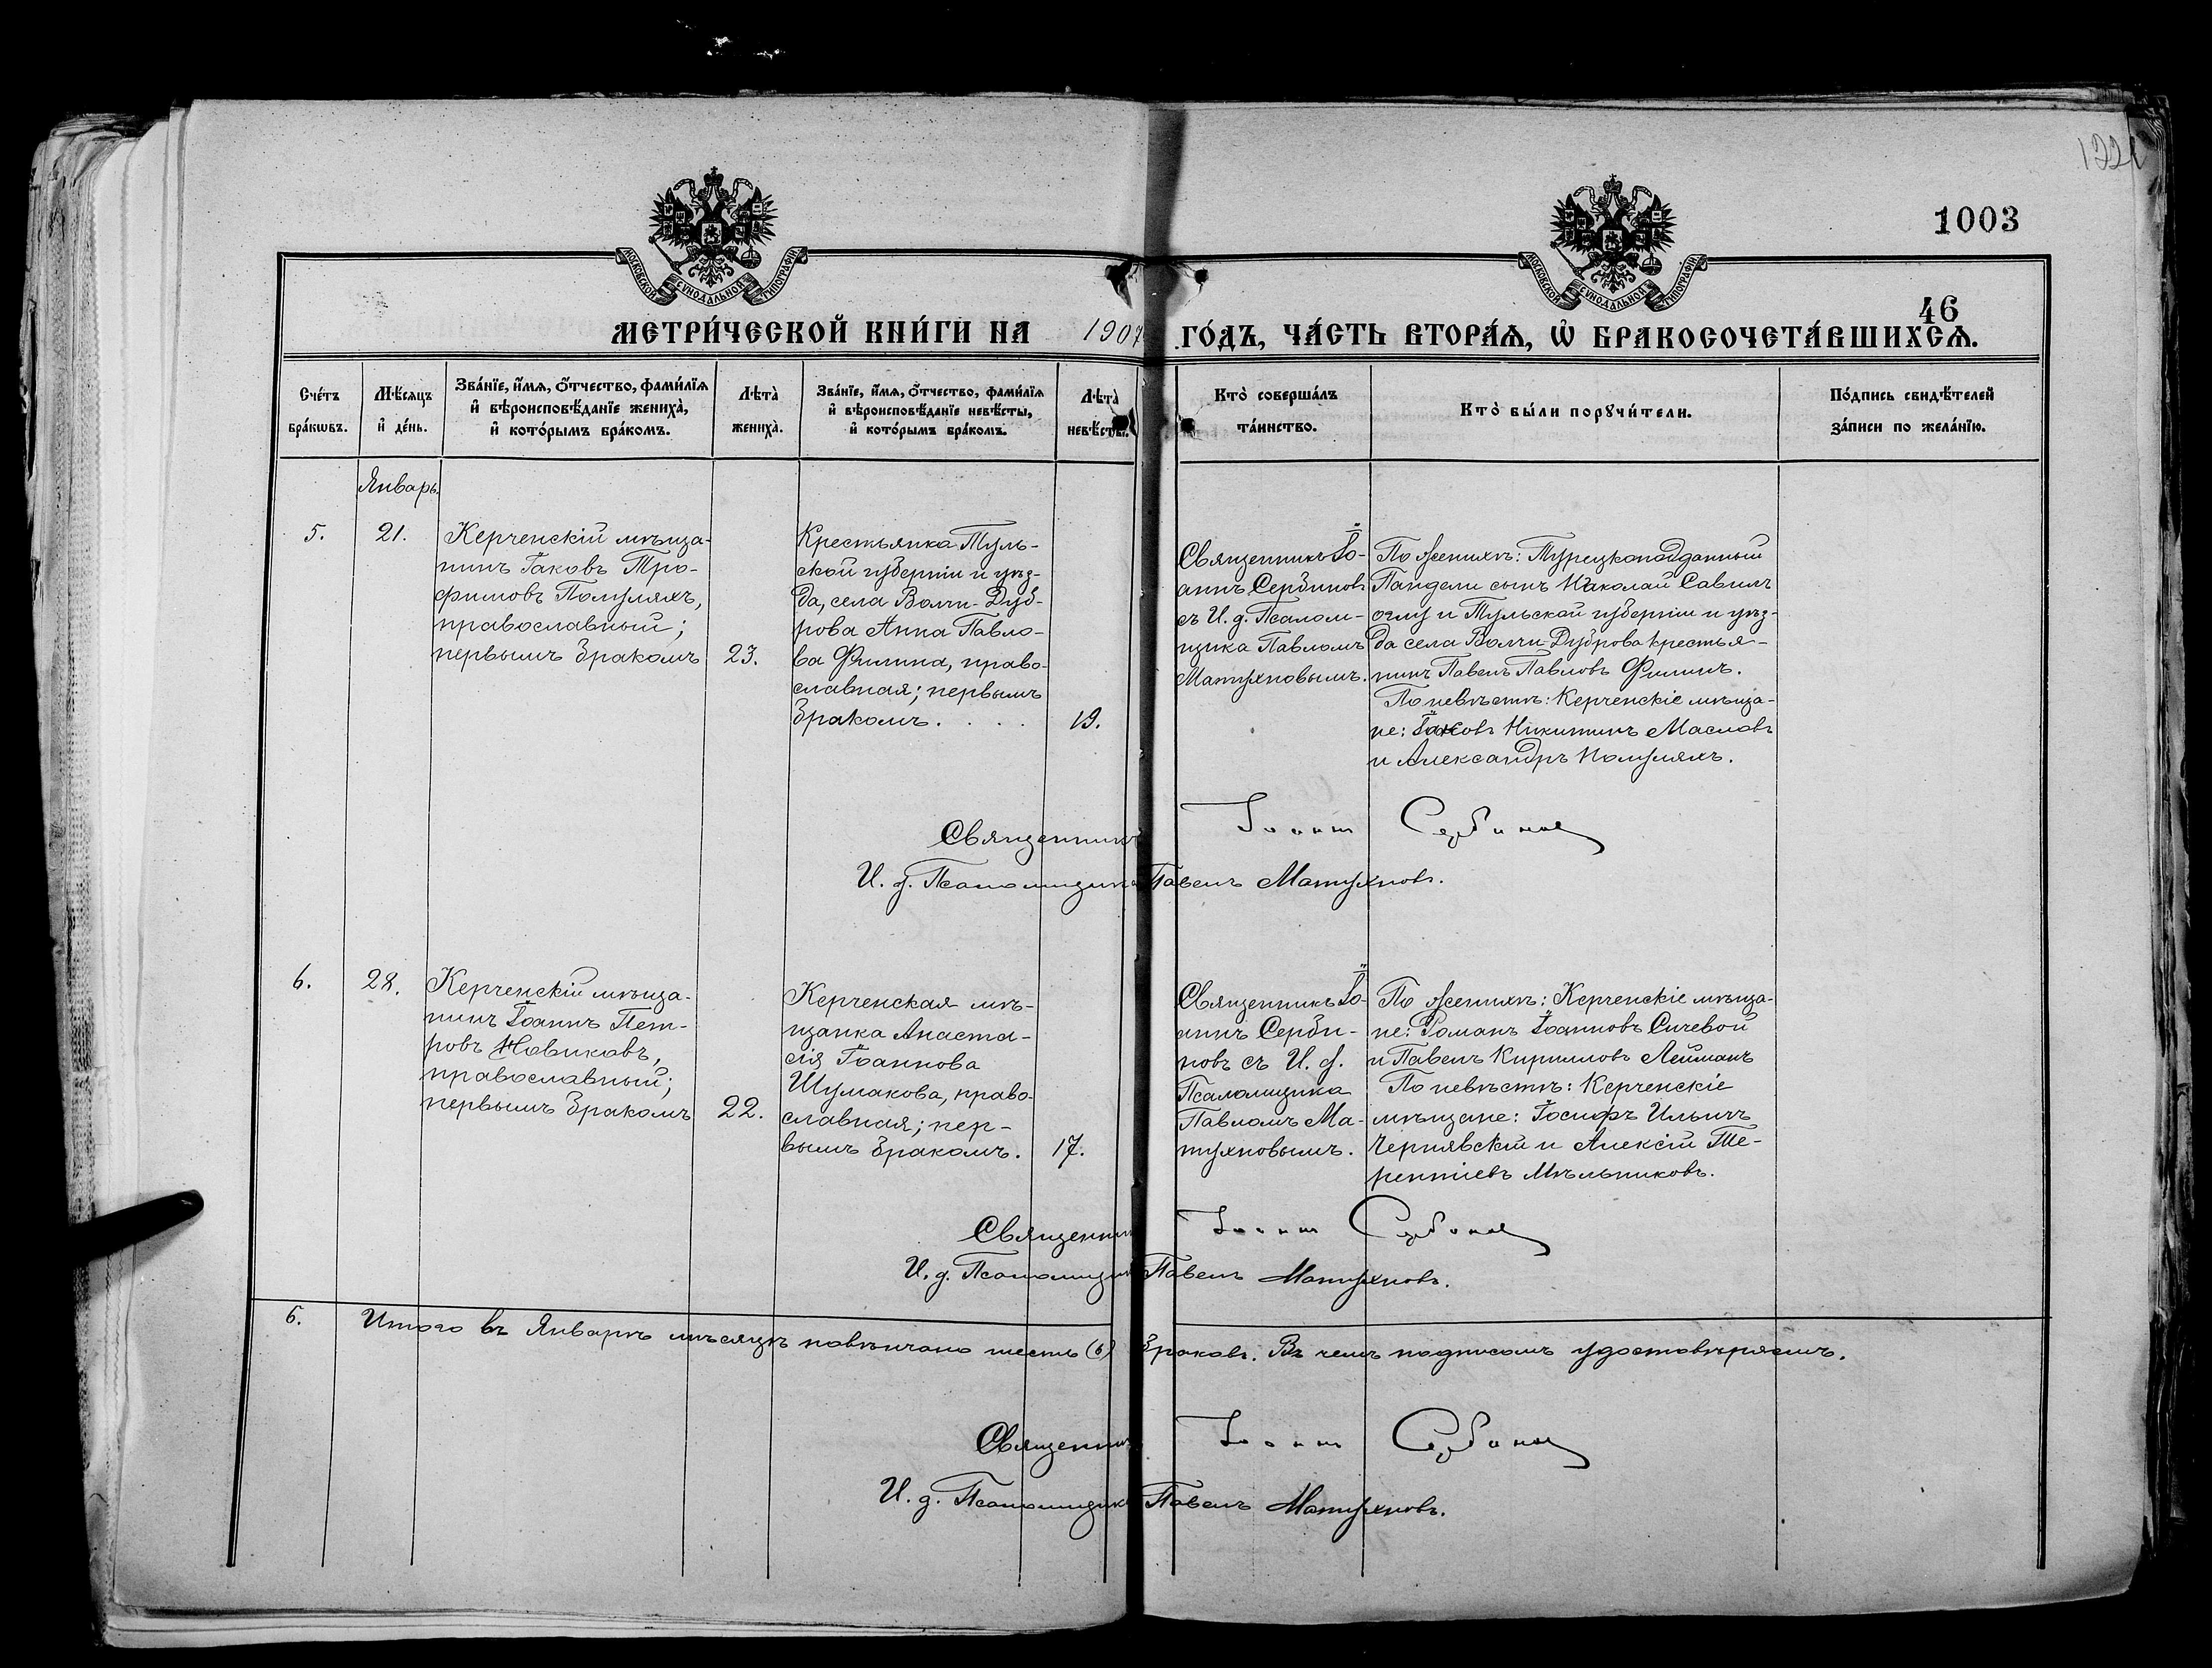 122
1003
МОСКОВСКОЙ СѴНОДАЛЬНОЙ ТИПОГРАФІИ
МОСКОВСКОЙ СѴНОДАЛЬНОЙ ТИПОГРАФІИ
46
МЕТРИ́ЧЕСКОЙ КНИ́ГИ НА 1907 ГО́ДЪ, ЧА́СТЬ ВТОРА́Ѧ, Ѡ҆ БРАКОСОЧЕТА́ВШИХСѦ.
Сче́тъ
бра́кѡвъ.
Мѣ́сяцъ
и҆ де́нь.
Зва́нїе, и҆́мѧ, ѻ҆́тчество, фами́лїѧ
и҆ вѣроисповѣ́данїе жениха̀,
и҆ кото́рымъ бра́комъ.
Лѣта̀
жениха̀.
Зва́нїе, и҆́мѧ, ѻ҆́тчество, фами́лїѧ
и҆ вѣроисповѣ́данїе невѣ́сты,
и҆ кото́рымъ бра́комъ.
Лѣта̀
невѣ́сты.
Кто̀ соверша́лъ
та́инство.
Кто̀ бы́ли порꙋчи́тели.
По́дпись свидѣ́телей
за́писи по жела́нїю.
Январь.
5.
21.
Керченскій мѣща-
нинъ Іаковъ Тро-
фимовъ Полуляхъ,
православный;
первымъ бракомъ
23.
Крестьянка Туль-
ской губерніи и уѣз-
да, села Волчи-Дуб-
рова Анна Павло-
ва Филина, право-
славная; первымъ
бракомъ. . . .
19.
Священникъ Іо-
аннъ Сербиновъ
съ И. д. Псалом-
щика Павломъ
Матухновымъ.
По женихѣ: Турецкоподданный
Пандели сынъ Николай Савилъ
оглу и Тульской губерніи и уѣз-
да села Волчи-Дуброва крестья-
нинъ Павелъ Павловъ Филинъ.
По невѣстѣ: Керченскіе мѣща-
не: Іаковъ Никитинъ Масловъ
и Александръ Полуляхъ.
Священникъ Іоаннъ Сербиновъ
И. д. Псаломщика Павелъ Матухновъ.
6.
28.
Керченскій мѣща-
нинъ Іоаннъ Пет-
ровъ Новиковъ,
православный;
первымъ бракомъ
22.
Керченская мѣ-
щанка Анаста-
сія Іоаннова
Шумакова, право-
славная; пер-
вымъ бракомъ.
17.
Священникъ Іо-
аннъ Серби-
новъ съ И. д.
Псаломщика
Павломъ Ма-
тухновымъ.
По женихѣ: Керченскіе мѣща-
не: Романъ Іоанновъ Сичевой
и Павелъ Кирилловъ Лейманъ
По невѣстѣ: Керченскіе
мѣщане: Іосифъ Ильичъ
Чернявскій и Алексій Те-
рентіевъ Мѣльниковъ.
Священникъ Іоаннъ Сербиновъ
И. д. Псаломщика Павелъ Матухновъ.
6.
Итого въ Январѣ мѣсяцѣ повѣнчано шесть (6) браковъ. Въ чемъ подписомъ удостовѣряемъ.
Священникъ Іоаннъ Сербиновъ
И. д. Псаломщика Павелъ Матухновъ.